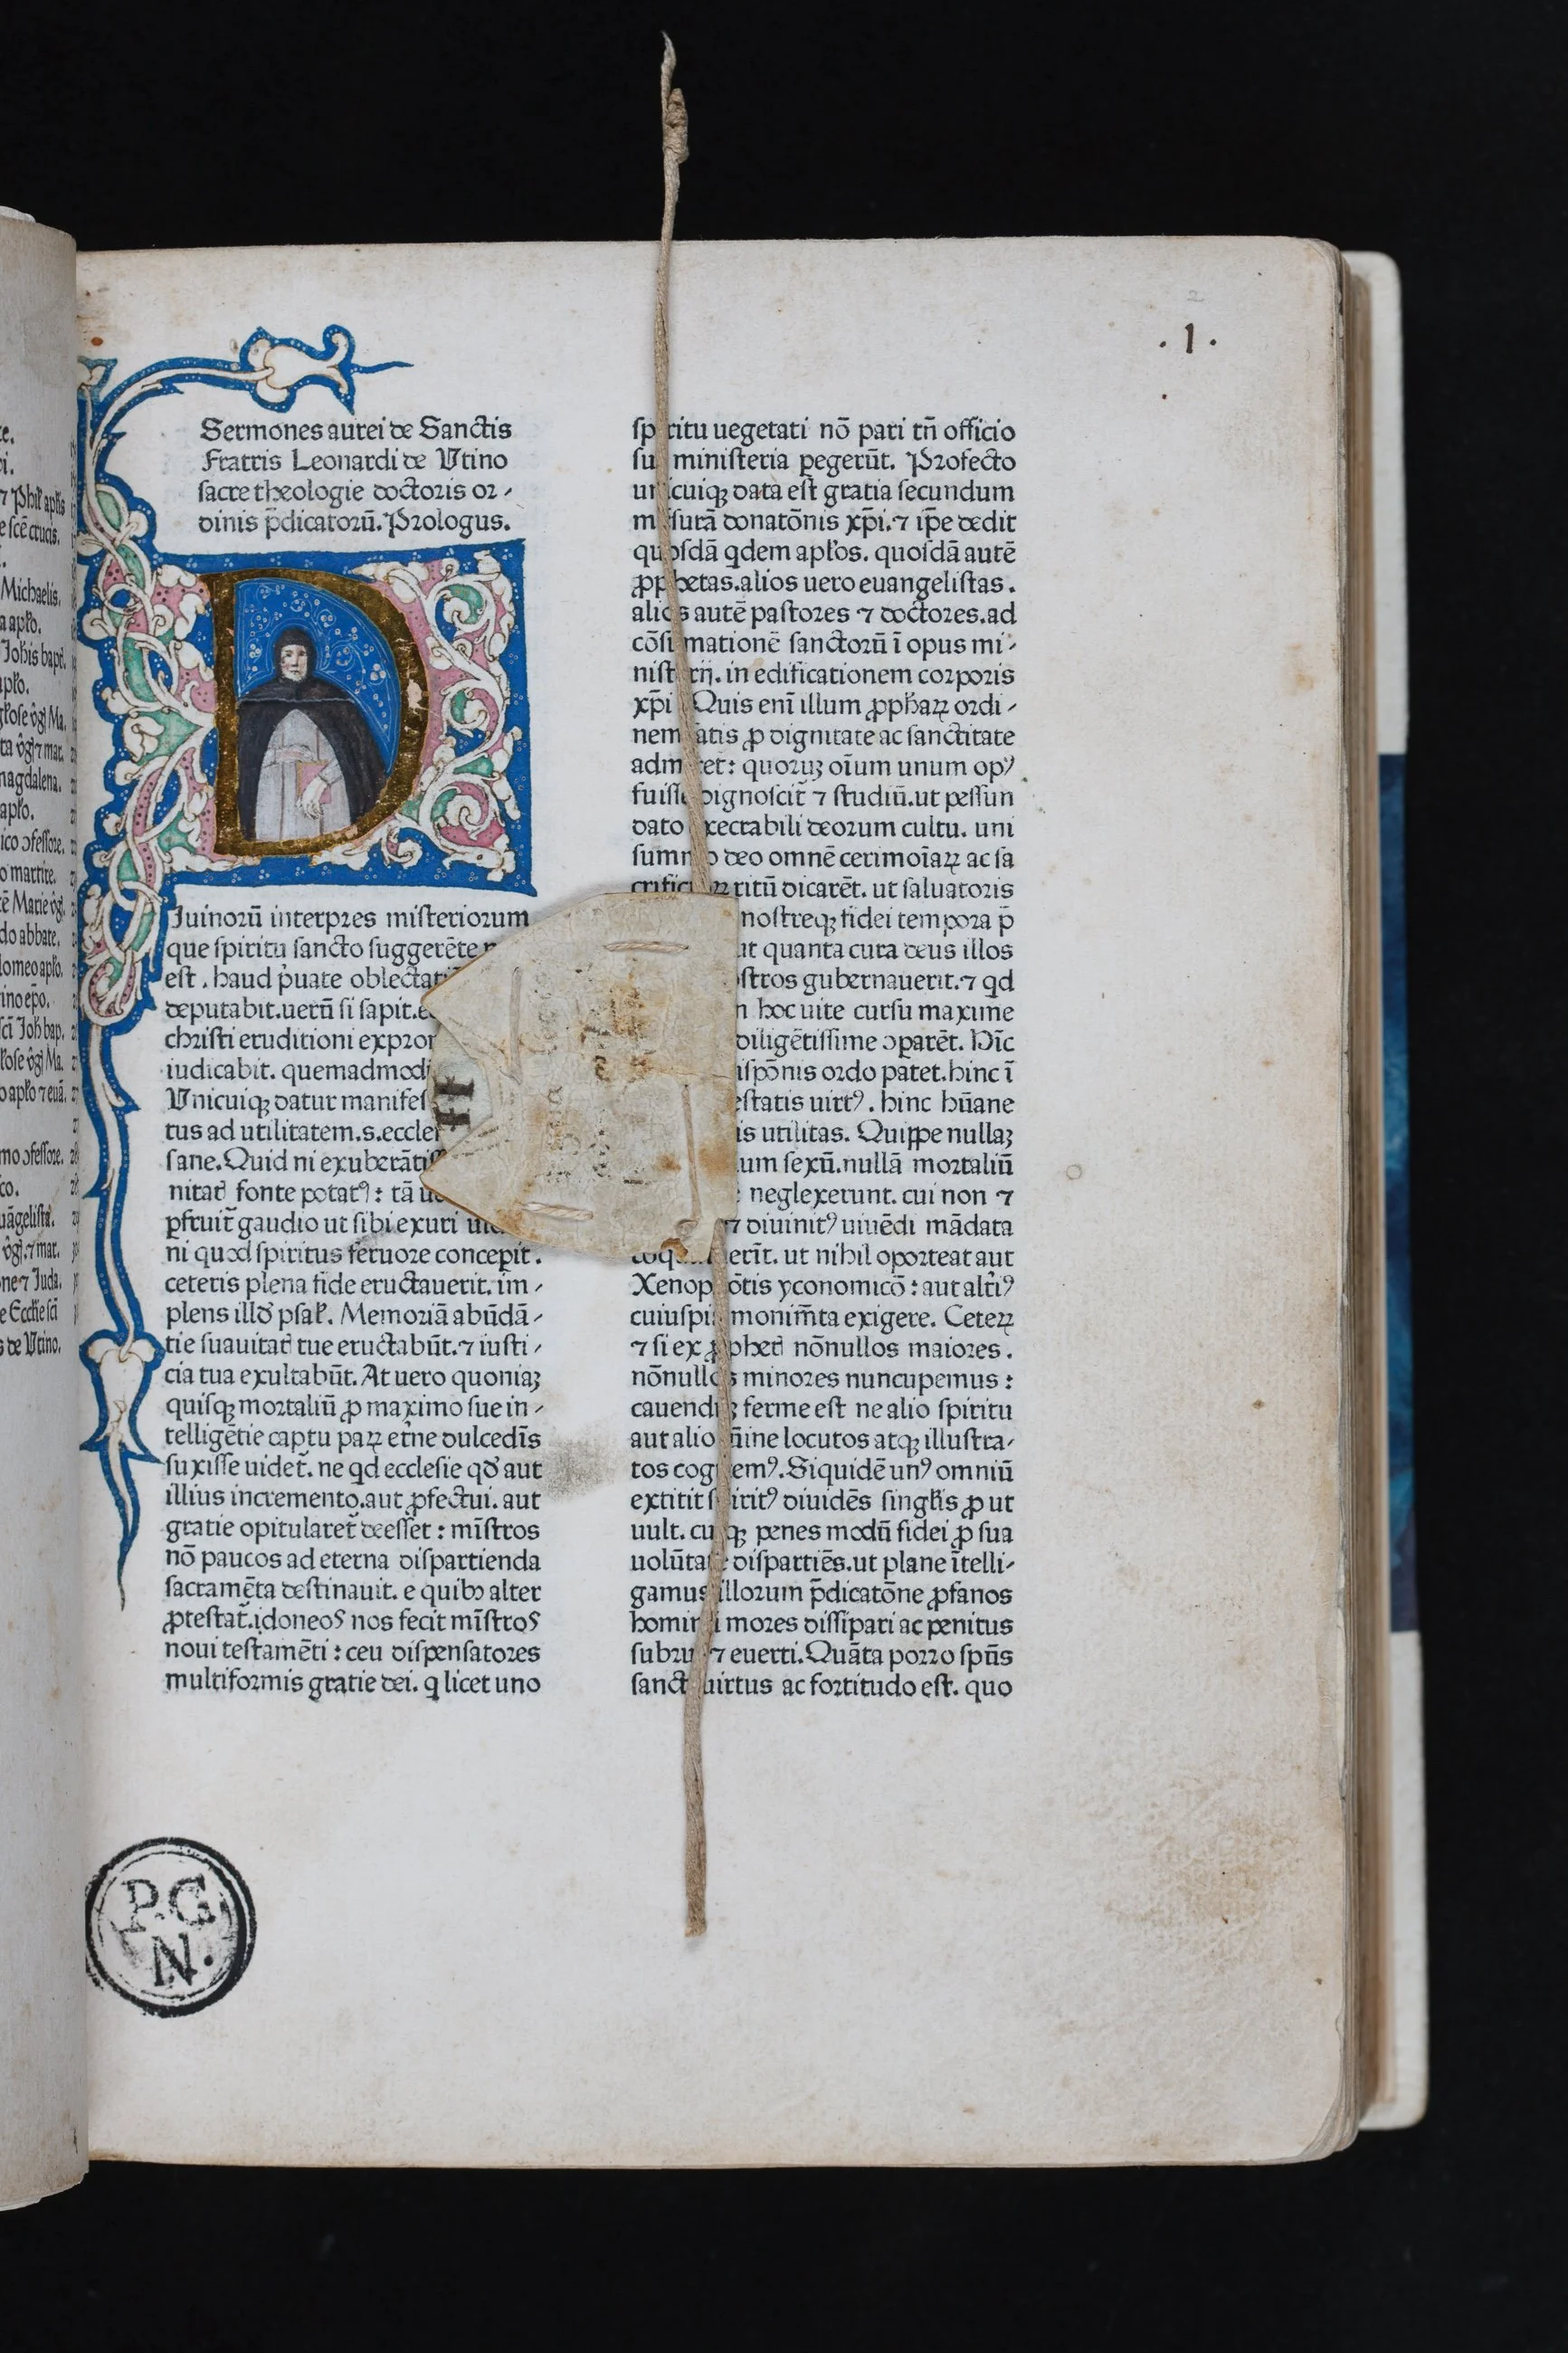 . 1 .
2
Sermones aurei de Sanctis
Fratris Leonardi de Utino
sacre theologie doctoris or-
dinis p̄dicatorū. Prologus.
D
Iuinorū interpres misteriorum
que spiritu sancto suggerēte
est . haud ṗuate oblectati
deputabit. uerū si sapit.
christi eruditioni expro
iudicabit. quemadmodū
Unicuiqꝫ datur manifes
tus ad utilitatem .s. eccle
sane. Quid ni exuberātiſſ
nitatꝭ fonte potatꝰ: tā
ꝑfruit̃ gaudio ut sibi exuri
ni quod spiritus feruore concepit .
ceteris plena fide eructauerit. im-
plens illđ psal̃. Memoriā abūdā-
tie suauitatꝭ tue eructabūt. ⁊ iusti-
cia tua exultabūt. At uero quoniaꝫ
quisqꝫ mortaliū ꝓ maximo sue in-
telligētie captu paꝝ et̃ne dulcedīs
suxisse uidet̃. ne qd ecclesie qđ aut
illius incremento. aut ꝓfectui. aut
gratie opitularet̃ deesset : mīstros
nō paucos ad eterna dispartienda
sacramēta destinauit. e quibꝰ alter
ꝓtestat̃. idoneos nos fecit mīstros
noui testamēti : ceu dispensatores
multiformis gratie dei. q licet uno
spiritu uegetati nō pari tn̄ officio
sui ministeria ꝑegerūt. Profecto
unicuiqꝫ data est gratia secundum
mēsurā donatōnis xp̄i. ⁊ ip̄e dedit
quosdā qdem apl̃os. quosdā autē
ꝓphetas. alios uero euangelistas .
alios autē pastores ⁊ doctores. ad
cōsūmationē sanctorū ī opus mi-
nisterij. in edificationem corporis
xp̄i. Quis enī illum ꝓphaꝝ ordi-
nem satis ꝓ dignitate ac sanctitate
admiret̃: quoruꝫ oīum unum opꝰ
fuisse dignoscit̃ ⁊ studiū. ut pessun
dato execrabili deorum cultu. uni
summo deo omnē cerimoīaꝝ ac sa
crificioꝝ ritū dicarēt. ut saluatoris
nostreqꝫ fidei tempora p̄
ut quanta cura deus illos
ostros gubernauerit. ⁊ qd
n hoc uite cursu maxime
diligētissime ↄꝑarēt. Hīc
ispōnis ordo patet. hinc ī
estatis uirtꝰ. hinc hūane
is utilitas. Quippe nullaꝫ
um sexū. nullā mortaliū
neglexerunt. cui non ⁊
⁊ diuinitꝰ uiuēdi mādata
erīt. ut nihil oporteat aut
Xenophōtis yconomicō : aut altiꝰ
cuiuspiā monim̄ta exigere. Ceteꝝ
⁊ si ex ꝓphetꝭ nōnullos maiores .
nōnullos minores nuncupemus :
cauendūꝫ ferme est ne alio spiritu
aut alio nūine locutos atqꝫ illustra-
tos cogitemꝰ. Siquidē unꝰ omniū
extitit spiritꝰ diuidēs singl̃is ꝓ ut
uult. cuiqꝫ penes modū fidei ꝓ sua
uolūtate dispartiēs. ut plane ītelli-
gamus illorum p̄dicatōne ꝓfanos
hominū mores dissipari ac penitus
subrui ⁊ euerti. Quāta porro sp̄us
sancti uirtus ac fortitudo est. quo
11
P.G
N.
⁊ Phil̃ apl̃is
e scē crucis.
Michaelis.
a apl̃o.
Joh̃is bapt̃.
apl̃o.
magdalena.
apl̃o.
ico ↄfessore.
o martire.
tē Marie ṽg̃.
do abbate.
lomeo apl̃o.
ino ep̄o.
sci Joh̃ bap.
o apl̃o ⁊ euā.
mo ↄfessore.
co.
uāgelista.
ṽg̃. ⁊ mar.
ne ⁊ Juda.
e Eccl̃ie sci
s de Utino.